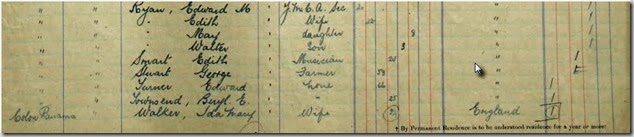 " " Ryan, Edward M Y.M.C.A. Sec 20 " 1
" " " Edith Wife 12 " 1
" " " May daughter 8 " 1
" " " Walter Son 3 " 1
" " Smart Edith Musician 26 " 1
" " Stuart George Farmer 58 " 1
" " Turner Edward none 66 " 1
" " Townsend, Beryl E. 25 " 1
Colon Panama " Walker, Ida Mary Wife England 1
† By Permanent Residence is to be understood residence for a year or more.